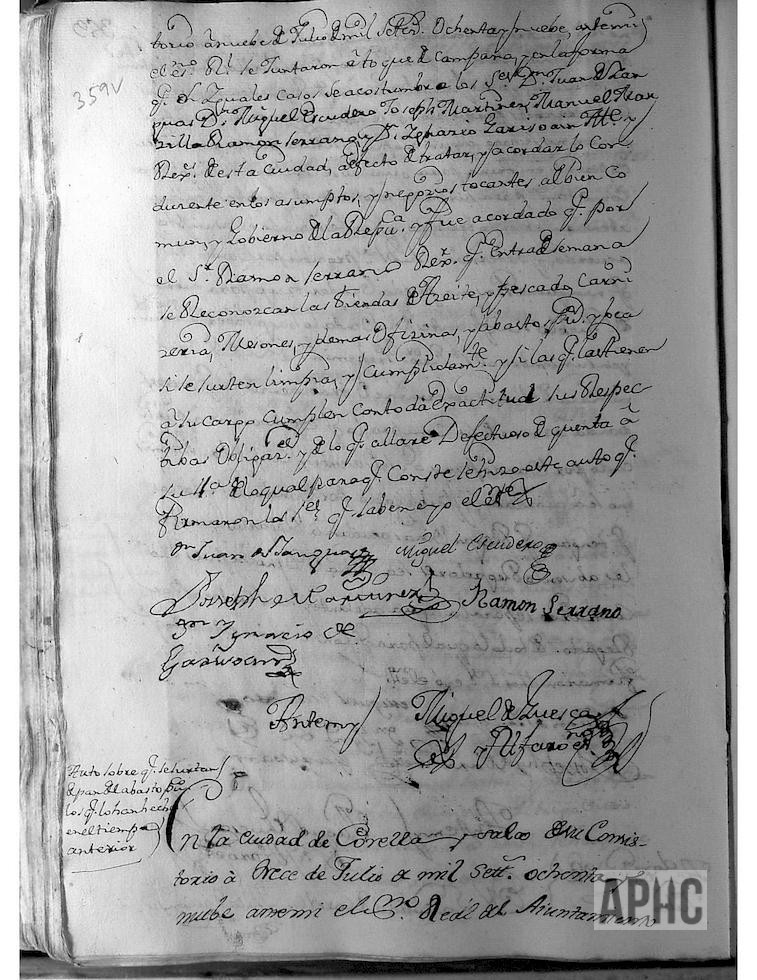 359V
torio à nuebe de Julio de mil Setecs. Ochenta y nuebe, ante mi
el esno. Rl. se Juntaron à toque de Campana, y en la forma
q. en Yguales casos se acostumbra los Sres. Dn. Juan de San
guas Dn. Miguel Escudero Joseph Martinez, Manuel
zilla Ramon Serrano, y Dn. Ygnacio Garisoain Alce. y
Rexs. de esta Ciudad, à efecto de tratar, y acordar lo Con
ducente en los asumptos, y negozios tocantes al bien Co
mun, y Gobierno de la Repuca. y fue acordado q. por
el Sr. Ramon Serrano Rexr. q. entra de semana
se Reconozcan las Tiendas de Azeite, y pescado, Carni
zeria, Mesones, y demas Ofizinas, y abastos
si se surten limpia, y Cumplidamte. y si los q. las tienen
à su cargo Cumplen con toda exactitud sus Respec
tibas Obligazs. y de lo q. allare Defectuoso de quenta à
su Sa. de lo qual para q. Conste se hizo este auto q.
firmaron los Ses. q. saben e yo el esno.
Dn Juan de Sanguas Miguel Escudero
Joseph Martinez Ramon Serrano
Dn Ygnacio de
Garisoain
Antemy Miguel de Luesca
y Alfaro esno
Auto sobre q. se surtan
de pan de abasto
los q. lo han hecho
en el tiempo
anterior
En la ciudad de Corella y salas de su Consis-
torio à trece de Julio de mil Sett. ochenta y
nuebe antemi el Esno. Real del Aiuntamiento
APHC